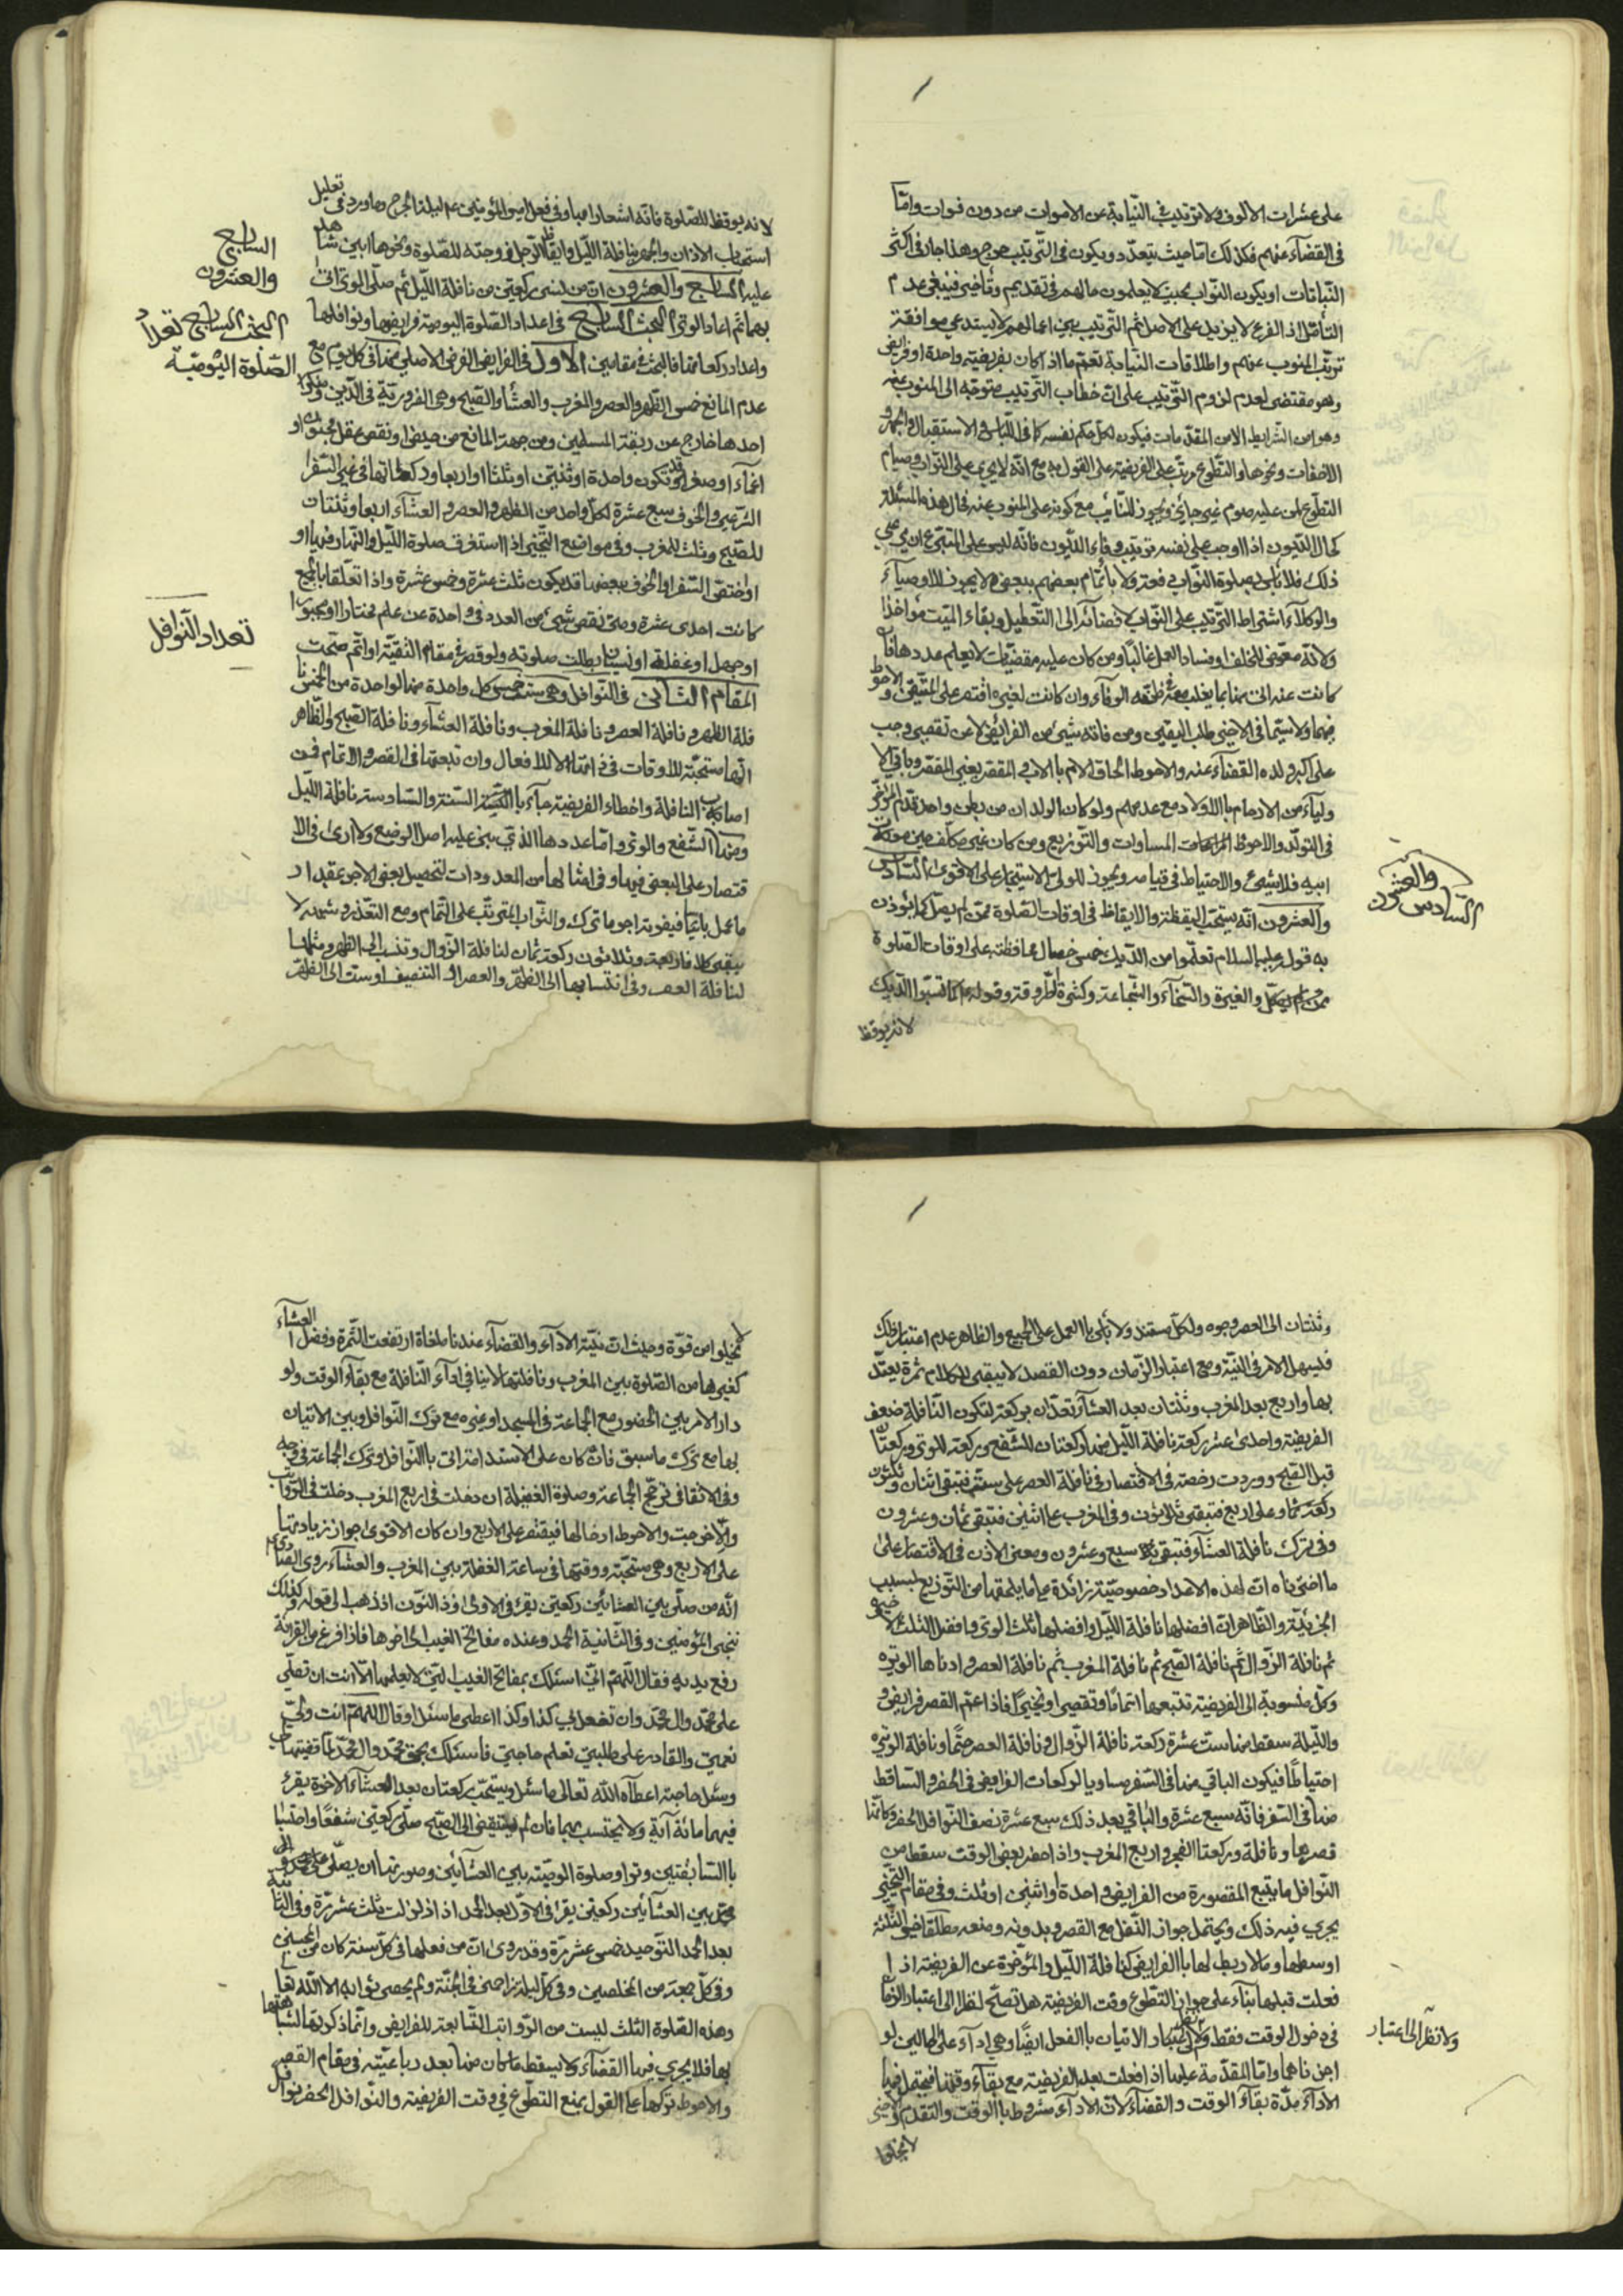 على عشرات الالوف ولا ترتيب في النيابة عن الاموات من دون فوات وامّا
في القضاء عنهم فكذلك امّا حيث يتعدّد ويكون في التّرتيب حرج وهذا جار في اكثر
النّيابات او يكون النّواب بحيث لا يعلمون ما لهم في تقديم وتأخير فينبغي عدم
التأمّل اذ الفرع لا يزيد على الاصل ثم التّرتيب بين اعمالهم لا يستدعي موافقة
ترتّب المنوب عنهم واطلاقات النّيابة تعمّ ما اذا كان بفريضة واحدة او فرايض
وهو مقتضى لعدم لزوم التّرتيب على انّ خطاب التّرتيب متوجّه الى المنوب عنه
وهو من الشّرايط لا من المقدّمات فيكون لكلّ حكم نفسه كما في اللّباس والاستقبال والجهر و
الاخفات ونحوها والتّطوع مرتّب على الفريضة على القول به مع انّه لا يجري على النّواب وصيام
التطوّع لمن عليه صوم غير جائز ويجوز للنّائب مع كونه على المنوب عنه فحال هذه المسئلة
كحال الدّيون اذا اوجب على نفسه ترتيب وفاء الدّيون فانّه ليس على المتبرّع ان يجري على
ذلك فلا بأس بصلوة النّواب في فوره ولا باتمام بعضهم ببعض ولا يجوز للاوصياء
والوكلاء اشتراط التّرتيب على النّواب لافضائه الى التّعطيل وبقاء الميّت مواخذا
ولانّه معرّض للخلف وفساد العمل غالبًا ومن كان عليه مقضيّات لا يعلم عددها فان
كانت عنه اتى منها بما يغلب معه في ظنّه الوفاء وان كانت لغيره اقتصر على المتيقّن والاحوط
فيهما ولا سيّما في الاخير طلب اليقين ومن فاته شيء من الفرائض لا عن تقصير وجب
على اكبر ولده القضاء عنه والاحوط الحاق الام بالاب وغير المقصّر وباقي الا
ولياء من الارحام بالاولاد مع عدمهم ولو كان الولدان من بطن واحد تقدّم المؤخّر
في التولّد والاحوط المساوات والتّوزيع ومن كان غير مكلّف حين موت
ابيه فلا شيء والاحتياط في قيامه ويجوز للولي الاستيجار على الاقوى السّادس
والعشرون انّه يستحبّ اليقظة والايقاظ في اوقات الصّلوة ممّن لم يصلّ كما يؤذن
به قوله عليه السلام تعلّموا من الدّيك خمس خصال محافظته على اوقات الصّلوة
والغيرة والسّخاء والشّجاعة وكثرة الطّروقة وقوله ع لا تسبّوا الدّيك
لانه يوقظ
السّادس والعشرون
لانه يوقظ للصّلوة فانّه اشعارا بها وفي فعل امير المؤمنين ع ليلة الجرح وما ورد في تعليل
استحباب الاذان والجهر بنافلة اللّيل وايقاظ الرّجل زوجته للصّلوة ونحوها ابين شاهد
عليه السابع والعشرون انّ من نسي ركعتين من نافلة اللّيل ثم صلّى الوتر اتى
بهما ثم اعاد الوتر البحث السابع في اعداد الصّلوة اليومية فرايضها ونوافلها
واعداد ركعاتها فالبحث في مقامين الاول في الفرايض الفرض الاصلي منها في كلّ يوم مع
عدم المانع خمس الظّهر والعصر والمغرب والعشاء والصّبح وهي الضّروريّة في الدّين ومنكر
احدها خارج عن ربقة المسلمين ومن جهة المانع من حيض او نقص عقل بجنون او
اغماء او صغر قد تكون واحدة او ثنتين او ثلثا او اربعا وركعاتها في غير السّفر
الشّرعي والخوف سبع عشرة لكلّ واحد من الظهر والعصر والعشاء اربعا وثنتان
للصّبح وثلث للمغرب وفي مواضع التّخيّر اذا استغرق صلوة اللّيل والنّهار فيها او
اختصّ السّفر او الخوف ببعضها قد يكون ثلث عشرة وخمس عشرة واذا تعلّقا بالجميع
كانت احدى عشرة ومتى نقص شيء من العدد في واحدة عن علم مختارا او مجبورا
او جهل او غفلة او نسيان بطلت صلوته ولو قصر في مقام التّقيّة او اتّم صحّت
المقام الثاني في النّوافل وهي ستّ خمس كلّ واحدة منها لواحدة من الخمس نا
فلة الظهر ونافلة العصر ونافلة المغرب ونافلة العشاء ونافلة الصّبح والظّاهر
انّها مستحبّة للاوقات لا للافعال وان تبعتها في القصر والاتمام فمن
اصاب النافلة واخطاء الفريضة جاء بالسّنة والسّادسة نافلة اللّيل
ومنها الشّفع والوتر وامّا عددها الذي بني عليه اصل الوضع ولا ارى في الا
قتصار على البعض فيها وفي امثالها من المعدودات لتحصيل بعض الاجر بمقدار
ما عمل بائسًا فيفوته اجر ما ترك والثّواب المترتّب على التّمام ومع التعّذر وشبهه لا
يبقى كلام فاربعة وثلاثون ركعة ثمان لنافلة الزّوال وتنسب الى الظهر ومثلها
لنافلة العصر وفي انتسابها الى الظّهر والعصر او التنصيف او ستّ الى الظّهر
السابع
والعشرون
البحث السابع تعداد
الصّلوة اليّوميّة
تعداد النّوافل
وثنتان الى العصر وجوه ولكلّ مستند ولا بأس بالعمل على الجميع والظاهر عدم اعتبار ذلك
فليسهل الامر في النّيّة ومع اعتبار الزّمان دون القصد لا يبقى للكلام ثمرة يعتدّ
بها واربع بعد المغرب وثنتان بعد العشاء تعدّان بركعة لتكون النّافلة ضعف
الفريضة واحدى عشر ركعة نافلة اللّيل منها ركعتان للشّفع وركعة للوتر وركعتان
قبل الصّبح ووردت رخصة في الاقتصار في نافلة العصر على ستّة فتبقى اثنان وثلثون
ركعة وعلى اربع فتبقى ثلاثون وفي المغرب على اثنين فتبقى ثمان وعشرون
وفي ترك نافلة العشاء فتبقى سبع وعشرون ومعنى الاذن في الاقتصار على
ما اخترناه انّ لهذه الاعداد خصوصيّة زائدة على ما يلحقها من التّوزيع لسبب
الجزئيّة والظّاهر انّ افضلها نافلة اللّيل وافضلها ثلث الوتر وافضل الثلث الاخيرة
ثم نافلة الزّوال ثم نافلة الصّبح ثم نافلة المغرب ثم نافلة العصر وادناها الوتيره
وكلّ منسوبة الى الفريضة تتبعها اتمامًا وتقصيرًا وتخييرًا فاذا عمّ القصر فرايض
واللّيلة سقط منها ستّ عشرة ركعة نافلة الزّوال ونافلة العصر حتمًا ونافلة الوتيره
احتياطًا فيكون الباقي منها في السّفر مساويا لركعات الفرايض في الحضر والسّاقط
منها في السّفر فانّه سبع عشرة والباقي بعد ذلك سبع عشرة نصف النّوافل الحضر وكانّما
قصرها ونافلة وركعتا الفجر واربع المغرب واذا حضر بعض الوقت سقط من
النّوافل ما يتبع المقصورة من الفرايض واحدة او اثنين او ثلث وفي مقام التّخيير
يجري فيه ذلك ويحتمل جواز النّفل مع القصر وبدونه ومنعه مطلقا خير الثّلثة
اوسطها وما لا ربط لها بالفرايض كنافلة اللّيل والمؤخّرة عن الفريضة اذا
فعلت قبلها بناء على جواز التّطوع وقت الفريضة هل تصحّ لنظر الى اعتبار الزّمان
في دخول الوقت فقط ولا نظر الى اعتبار الاتيان بالفعل ايضًا وهي اداء على الحالين لو
اجزناها وامّا المقدّمة عليها اذا فعلت بعد الفريضة مع بقاء وقتها فيحتمل فيها
الاداء مدّة بقاء الوقت والقضاء لانّ الاداء مشروط بالوقت والتقدم والاخير
لا يخلوا
ولا نظر الى اعتبار
لا يخلوا من قوّة وحيث انّ نيّة الاداء والقضاء عندنا ملغاة ارتفعت الثّمرة وفضل العشاء
كغيرها من الصّلوة بين المغرب ونافلتها لا ينافي اداء النّافلة مع بقاء الوقت ولو
دار الامر بين الحضور مع الجماعة في المسجد او غيره مع ترك النّوافل وبين الاتيان
بها مع ترك ما سبق فان كان على الاستدامة اتى بالنّوافل وترك الجماعة في وجه
وفي الاتفاقي ترجّح الجماعة وصلوة الغفيلة ان دخلت في اربع المغرب دخلت في الرّواتب
والّا خرجت والاحوط ادخالها فيقتصر على الاربع وان كان الاقوى جواز زيادتها
على الاربع وهي مستحبّة ووقتها في ساعة الغفلة بين المغرب والعشاء روى الصّادق ع
انّه من صلّى بين العشائين ركعتين يقرء في الاولى وذا النّون اذ ذهب الى قوله وكذلك
ننجي المؤمنين وفي الثّانية الحمد وعنده مفاتح الغيب الى اخرها فاذا فرغ من القرائة
رفع يديه فقال اللّهمّ انّي اسئلك بمفاتح الغيب التي لا يعلمها الّا انت ان تصلّي
على محمّد وال محمّد وان تفعل بي كذا وكذا اعطي ما سئل وقال اللّهمّ انت وليّ
نعمتي والقادر على طلبتي تعلم حاجتي فاسئلك بحق محمّد وال محمّد لمّا قضيتها لي
وسئل حاجة اعطاه الله تعالى ما سئل ويستحّب ركعتان بعد العشاء الاخرة يقرء
فيهما مائة آية ولا يحتسب بهما فان لم يستيقض الى الصّبح صلّى ركعتين شفعًا واحتسبا
بالسّابقتين وترا وصلوة الوصيّة بين العشائين وصورتها ان يصلّي
بين العشائين ركعتين يقراء في الاولى بعد الحمد اذا زلزلت ثلث عشر مرّة وفي الثّانية
بعد الحمد التّوحيد خمس عشر مرّة وقد روى انّ من فعلها في كلّ سنة كان من المحسنين
وفي كلّ جمعة من المخلصين وفي كلّ ليلة زاحمني في الجنّة ولم يحص ثوابه الا الله تعالى
وهذه الصّلوة الثّلث ليست من الرّواتب التّابعة للفرايض وانّما ذكرتها لشباهتها
بها فلا يجري فيها القضاء ولا يسقط ما كان منها بعد رباعيّة في مقام القصر
والاحوط تركها على القول بمنع التطوّع في وقت الفريضة والنّوافل الحضر